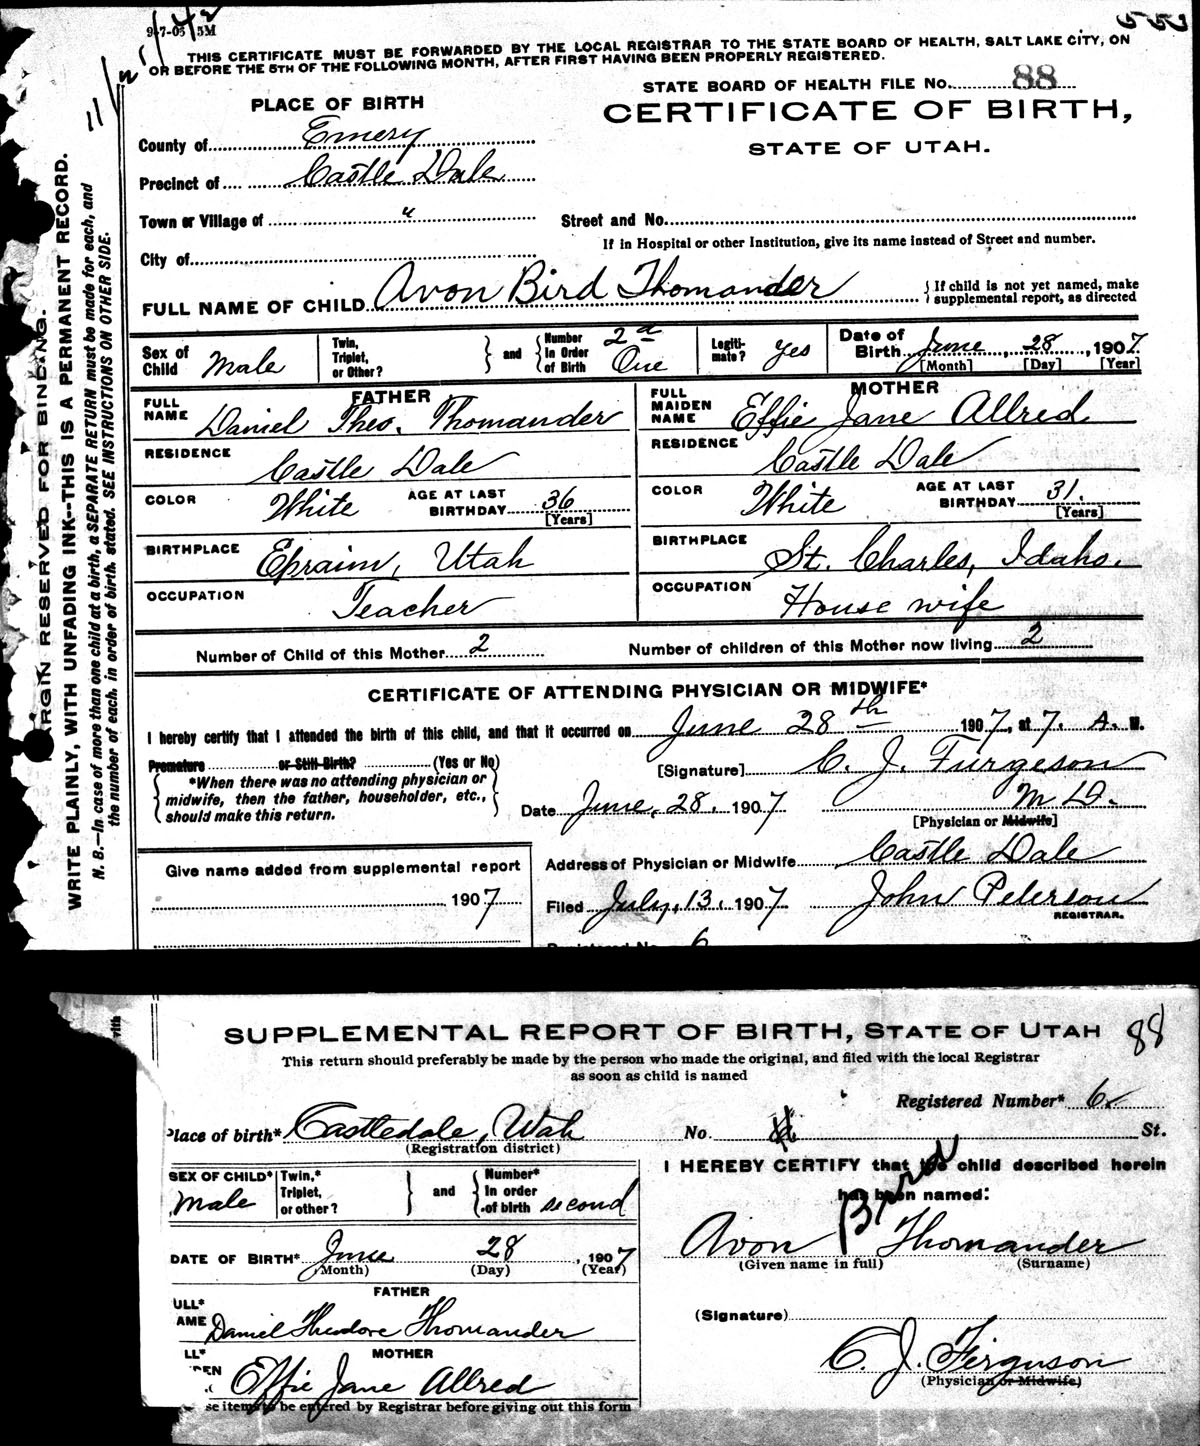 9-7-05 5M
THIS CERTIFICATE MUST BE FORWARDED BY THE LOCAL REGISTRAR TO THE STATE BOARD OF HEALTH, SALT LAKE CITY, ON
OR BEFORE THE 5TH OF THE FOLLOWING MONTH, AFTER FIRST HAVING BEEN PROPERLY REGISTERED.
STATE BOARD OF HEALTH FILE No. 88
PLACE OF BIRTH
CERTIFICATE OF BIRTH,
STATE OF UTAH.
County of Emery
Precinct of Castle Dale
Town or Village of "
Street and No.
If in Hospital or other Institution, give its name instead of Street and number.
City of
FULL NAME OF CHILD Avon Bird Thomander
If child is not yet named, make
supplemental report, as directed
Sex of Child Male
Twin, Triplet, or Other?
and
Number in Order of Birth 2d One
Legitimate? yes
Date of Birth June 28, 1907
[Month] [Day] [Year]
FATHER
FULL NAME Daniel Theo. Thomander
RESIDENCE Castle Dale
COLOR White AGE AT LAST BIRTHDAY 36 [Years]
BIRTHPLACE Epraim, Utah
OCCUPATION Teacher
MOTHER
FULL MAIDEN NAME Effie Jane Allred
RESIDENCE Castle Dale
COLOR White AGE AT LAST BIRTHDAY 31. [Years]
BIRTHPLACE St. Charles, Idaho.
OCCUPATION House wife
Number of Child of this Mother 2
Number of children of this Mother now living 2
CERTIFICATE OF ATTENDING PHYSICIAN OR MIDWIFE*
I hereby certify that I attended the birth of this child, and that it occurred on June 28th 1907, at 7. A. M.
Premature or Still-Birth? (Yes or No)
*When there was no attending physician or
midwife, then the father, householder, etc.,
should make this return.
[Signature] C. J. Furgeson
M D.
Date June, 28. 1907
[Physician or Midwife]
Address of Physician or Midwife Castle Dale
Give name added from supplemental report
1907
Filed July, 13, 1907 John Peterson
REGISTRAR.
Registered No. 6
MARGIN RESERVED FOR BINDING.
WRITE PLAINLY, WITH UNFADING INK--THIS IS A PERMANENT RECORD.
N. B.—In case of more than one child at a birth, a SEPARATE RETURN must be made for each, and
the number of each, in order of birth, stated. SEE INSTRUCTIONS ON OTHER SIDE.
SUPPLEMENTAL REPORT OF BIRTH, STATE OF UTAH 88
This return should preferably be made by the person who made the original, and filed with the local Registrar
as soon as child is named
Registered Number* 6
Place of birth* Castledale, Utah
(Registration district)
No. St.
SEX OF CHILD* Male
Twin,* Triplet, or other?
and
Number* In order of birth second
DATE OF BIRTH* June 28, 1907
(Month) (Day) (Year)
FATHER
ULL* AME Daniel Theodore Thomander
MOTHER
LL* DEN Effie Jane Allred
se items to be entered by Registrar before giving out this form
I HEREBY CERTIFY that the child described herein
has been named:
Avon Bird Thomander
(Given name in full) (Surname)
(Signature)
C. J. Ferguson
(Physician or Midwife)